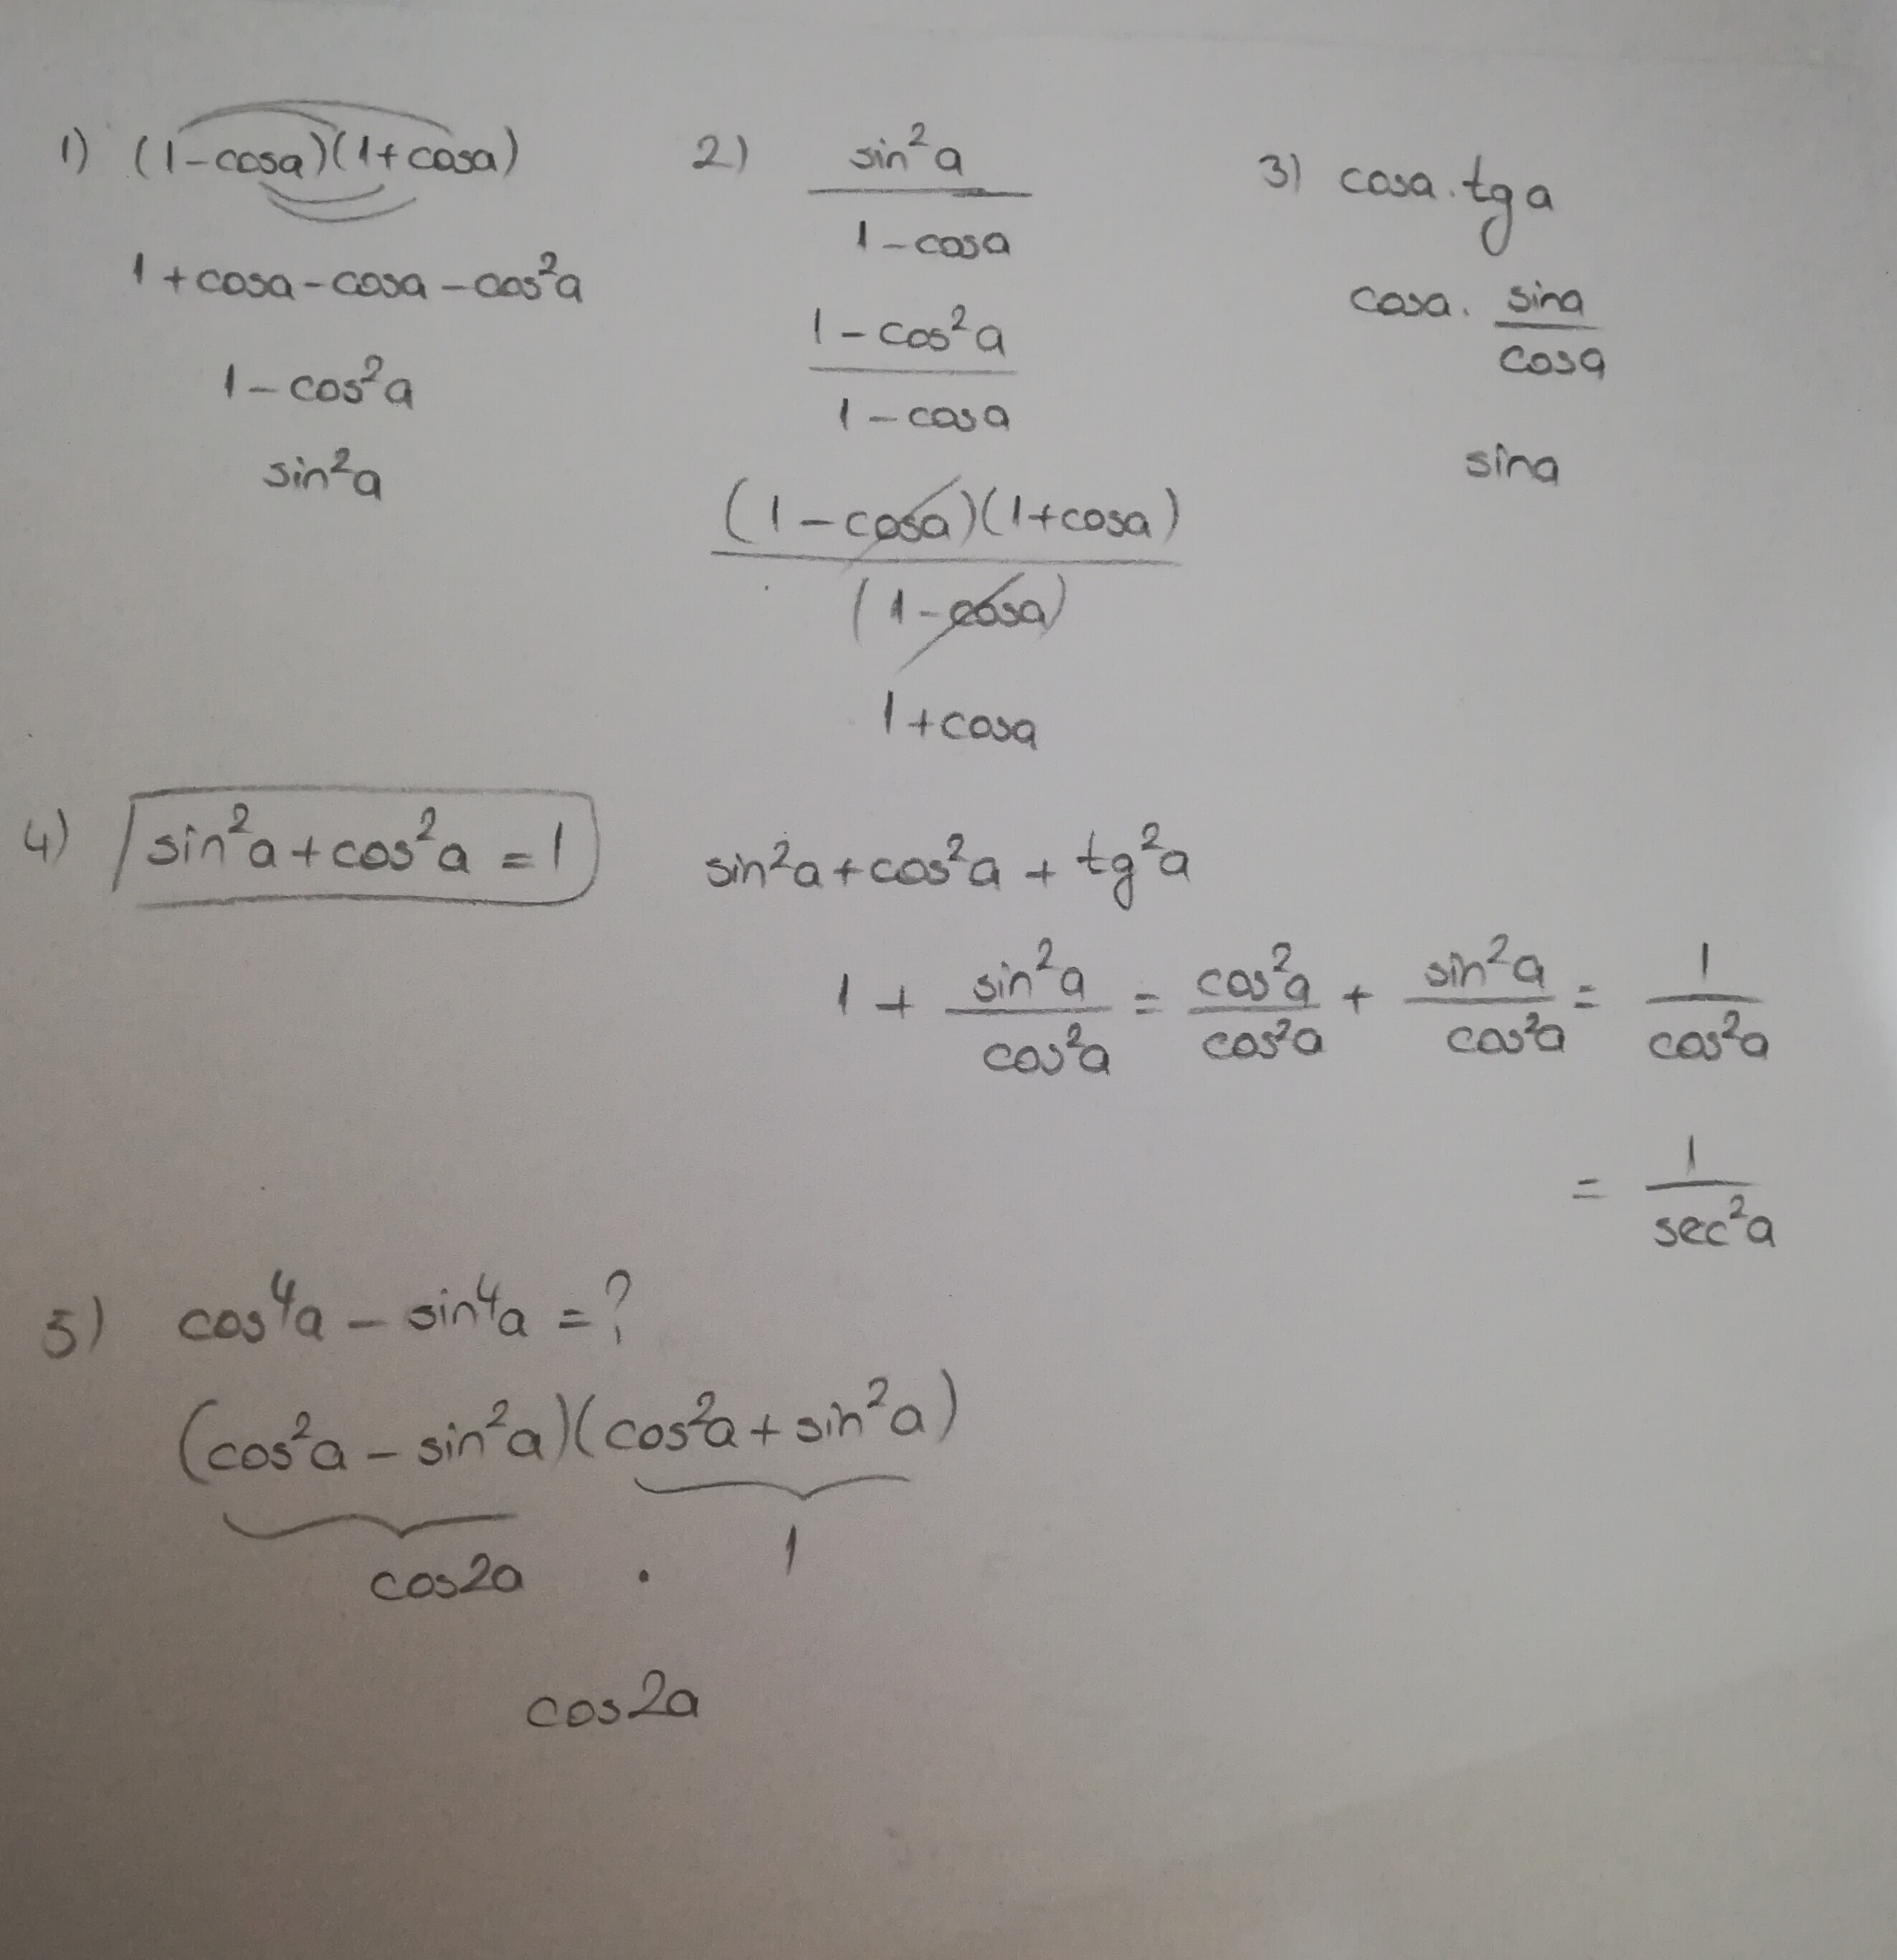 1) (1-cosa)(1+cosa)
1+cosa-cosa-cos²a
1-cos²a
sin²a
2) sin²a / 1-cosa
1-cos²a / 1-cosa
(1-cosa)(1+cosa) / (1-cosa)
1+cosa
3) cosa.tga
cosa. sina / cosa
sina
4) sin²a+cos²a=1
sin²a+cos²a+tg²a
1 + sin²a / cos²a = cos²a / cos²a + sin²a / cos²a = 1 / cos²a
= 1 / sec²a
5) cos⁴a - sin⁴a = ?
(cos²a - sin²a)(cos²a + sin²a)
cos2a . 1
cos2a